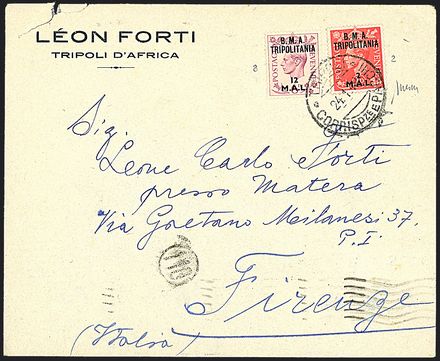 LÉON FORTI
TRIPOLI D'AFRICA
B.M.A.
TRIPOLITANIA
12
M.A.L.
B.M.A.
TRIPOLITANIA
2
M.A.L.
POSTAGE
CORRISPZE E P
Sig.
Leone Carlo Forti
presso Matera
Via Gaetano Milanesi 37.
P.I.
Firenze
(Italia)